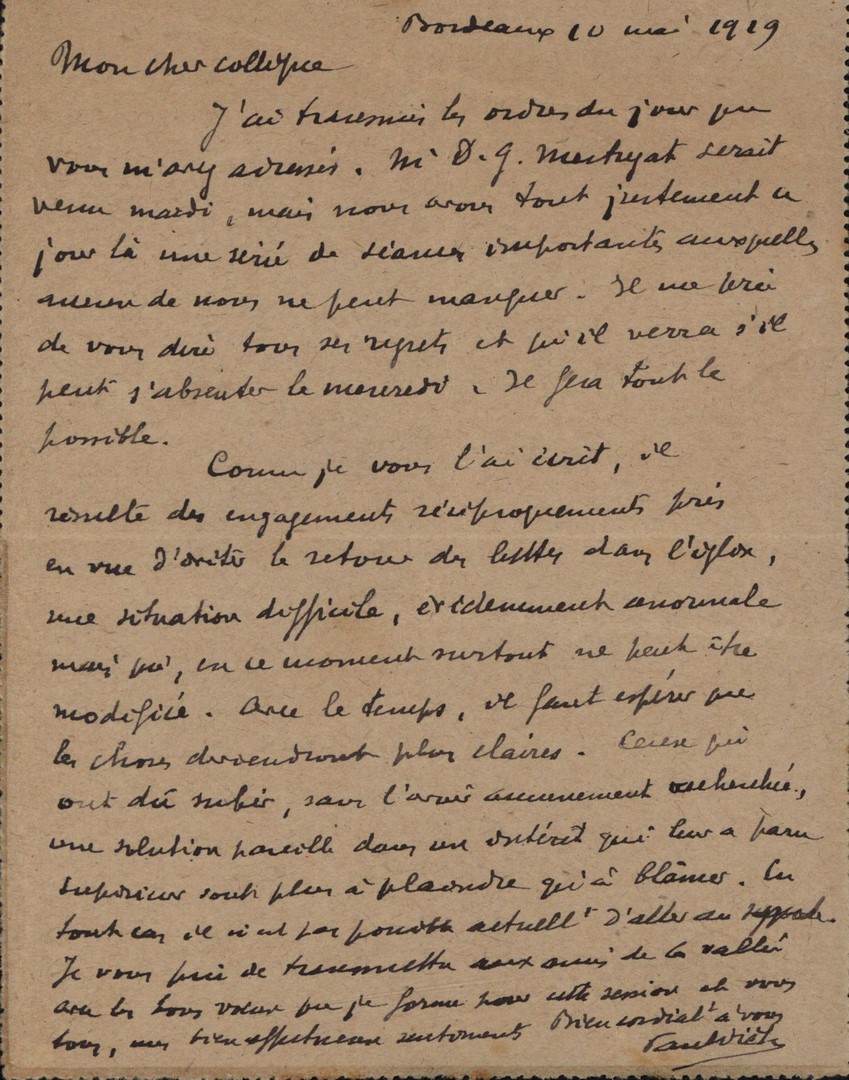 Bordeaux 10 mai 1919
Mon cher collègue
J'ai transmis les ordres du jour que
vous m'avez adressés. Mr D. G. Mestrezat serait
venu mardi, mais nous avons tout justement ce
jour là une série de séances importantes auxquelles
aucun de nous ne peut manquer. Il me prie
de vous dire tous ses regrets et qu'il verra s'il
peut s'absenter le mercredi. Il fera tout le
possible.
Comme je vous l'ai écrit, il
résulte des engagements réciproquements pris
en vue d'éviter le retour des luttes dans l'église,
une situation difficile, évidemment anormale
mais qui, en ce moment surtout ne peut être
modifiée. Avec le temps, il faut espérer que
les choses deviendront plus claires. Ceux qui
ont dû subir, sans l'avoir aucunement recherchée,
une solution pareille dans un intérêt qui leur a paru
supérieur sont plus à plaindre qu'à blâmer. En
tout cas il n'est pas possible actuellt d'aller au
Je vous prie de transmettre aux amis de la vallée
avec les bons vœux que je forme pour cette session et vous
tous, mes bien affectueux sentiments Bien cordialt à vous